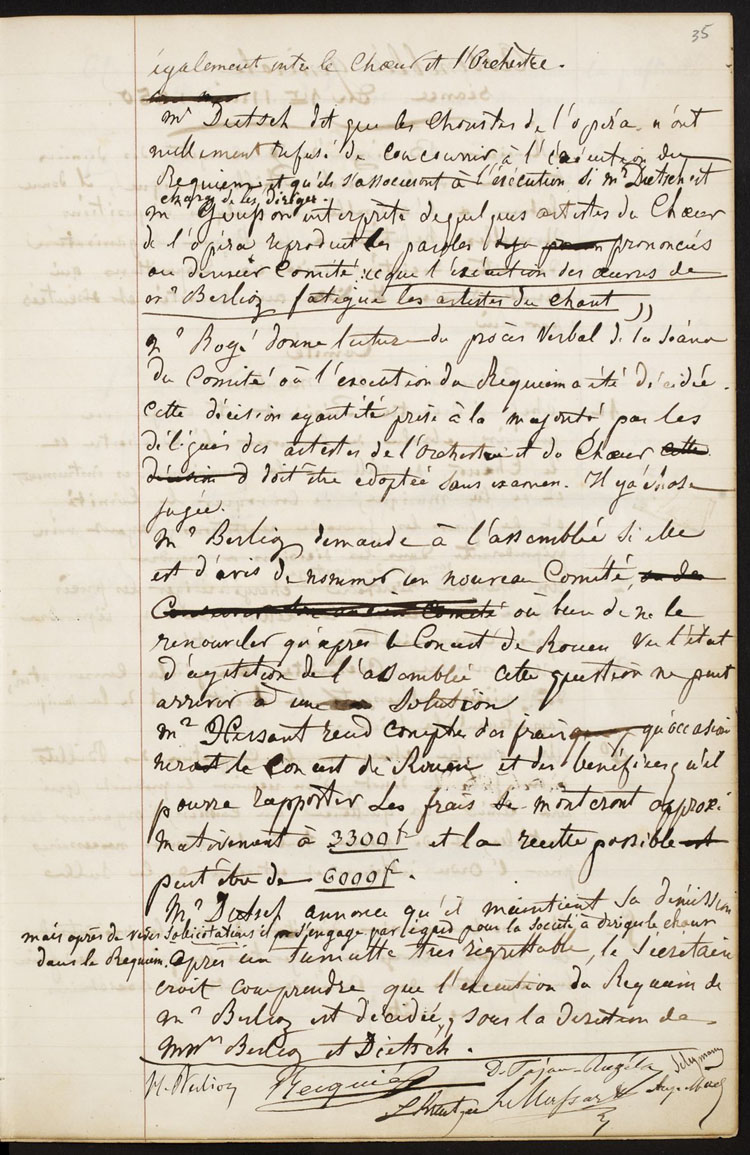 35
également entre le Chœur et l'Orchestre.
Mr Dietsch dit que les Choristes de l'opéra n'ont
nullement refusé de concourrir à l'exécution du
Requiem et qu'ils s'associeront à l'exécution si Mr Dietsch est
chargé de les diriger.
M interprète de quelques artistes du Chœur
de l'opéra reproduit les paroles prononcées
au dernier Comité: "que l'exécution des œuvres de
Mr Berlioz fatigue les artistes du chant"
Mr Rogé donne lecture du procès Verbal de la séance
du Comité où l'execution du Requiem a été décidée.
Cette décision ayant été prise à la majorité par les
délégués des artistes de l'Orchestre et du Chœur cette
décision doit être adoptée sans examen. Il y a chose
jugée.
Mr Berlioz demande à l'assemblée si elle
est d'avis de nommer un nouveau Comité, ou de
Comité où bien de ne le
renouveler qu'après le Concert de Rouen Vu l'état
d'agitation de l'assemblée cette question ne peut
arriver à une solution
Mr rend compte des frais qu'occasion
nerait le Concert de Rouen et des bénéfices qu'il
pourra rapporter Les frais se monteront approxi
mativement à 3300f et la recette possible est
peut être de 6000f.
Mr Dietsch annonce qu'il maintient sa démission
mais après de vives solicitations il s'engage par égard pour la Société à diriger le chœur
dans le Requiem. après un tumulte très régrettable, le Sécretaire
croit comprendre que l'execution du Requiem de
Mr Berlioz est décidée, sous la direction de
MMrs Berlioz et Dietsch.
H. Berlioz